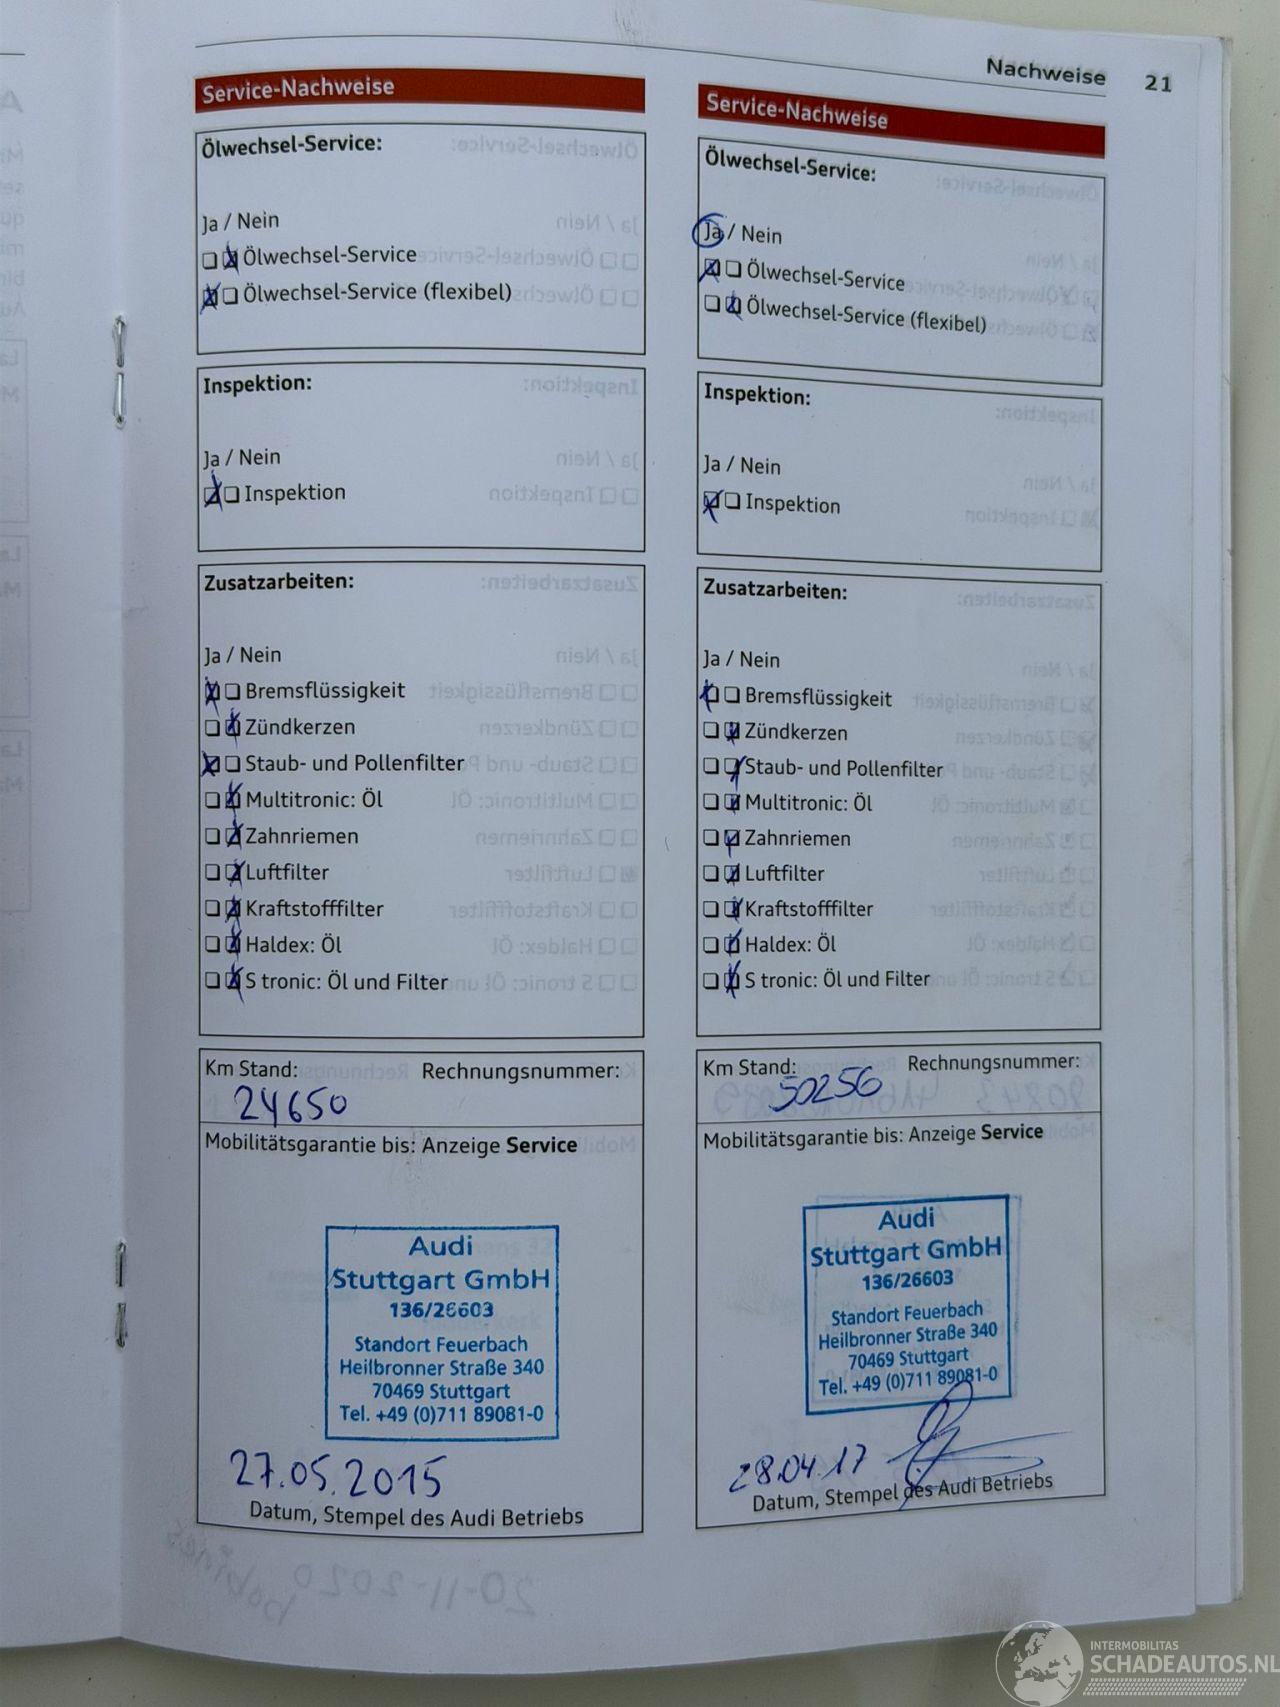 Nachweise 21
Service-Nachweise
Ölwechsel-Service:
Ja / Nein
Ölwechsel-Service
Ölwechsel-Service (flexibel)
Inspektion:
Ja / Nein
Inspektion
Zusatzarbeiten:
Ja / Nein
Bremsflüssigkeit
Zündkerzen
Staub- und Pollenfilter
Multitronic: Öl
Zahnriemen
Luftfilter
Kraftstofffilter
Haldex: Öl
S tronic: Öl und Filter
Km Stand: Rechnungsnummer:
24650
Mobilitätsgarantie bis: Anzeige Service
Audi
Stuttgart GmbH
136/26603
Standort Feuerbach
Heilbronner Straße 340
70469 Stuttgart
Tel. +49 (0)711 89081-0
27.05.2015
Datum, Stempel des Audi Betriebs
Service-Nachweise
Ölwechsel-Service:
Ja / Nein
Ölwechsel-Service
Ölwechsel-Service (flexibel)
Inspektion:
Ja / Nein
Inspektion
Zusatzarbeiten:
Ja / Nein
Bremsflüssigkeit
Zündkerzen
Staub- und Pollenfilter
Multitronic: Öl
Zahnriemen
Luftfilter
Kraftstofffilter
Haldex: Öl
S tronic: Öl und Filter
Km Stand: Rechnungsnummer:
50256
Mobilitätsgarantie bis: Anzeige Service
Audi
Stuttgart GmbH
136/26603
Standort Feuerbach
Heilbronner Straße 340
70469 Stuttgart
Tel. +49 (0)711 89081-0
28.04.17
Datum, Stempel des Audi Betriebs
INTERMOBILITAS
SCHADEAUTOS.NL